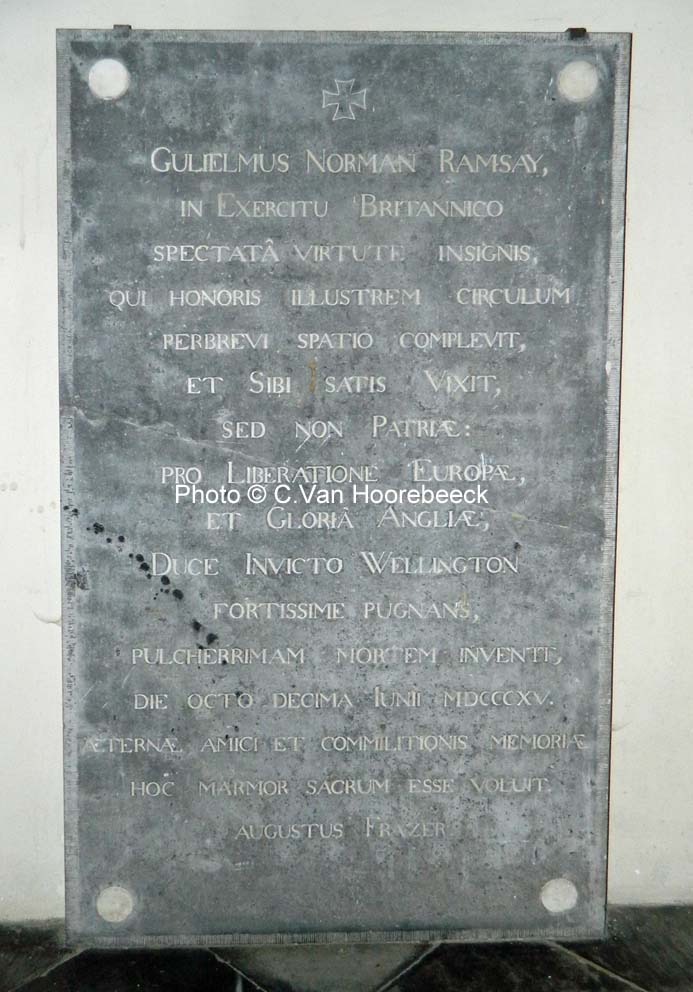 GULIELMUS NORMAN RAMSAY,
IN EXERCITU BRITANNICO
SPECTATÂ VIRTUTE INSIGNIS,
QUI HONORIS ILLUSTREM CIRCULUM
PERBREVI SPATIO COMPLEVIT,
ET SIBI SATIS VIXIT,
SED NON PATRIÆ:
PRO LIBERATIONE EUROPÆ,
Photo © C.Van Hoorebeeck
ET GLORIÂ ANGLIÆ,
DUCE INVICTO WELLINGTON
FORTISSIME PUGNANS,
PULCHERRIMAM MORTEM INVENIT,
DIE OCTO DECIMA IUNII MDCCCXV.
ÆTERNÆ AMICI ET COMMILITIONIS MEMORIÆ
HOC MARMOR SACRUM ESSE VOLUIT.
AUGUSTUS FRAZER